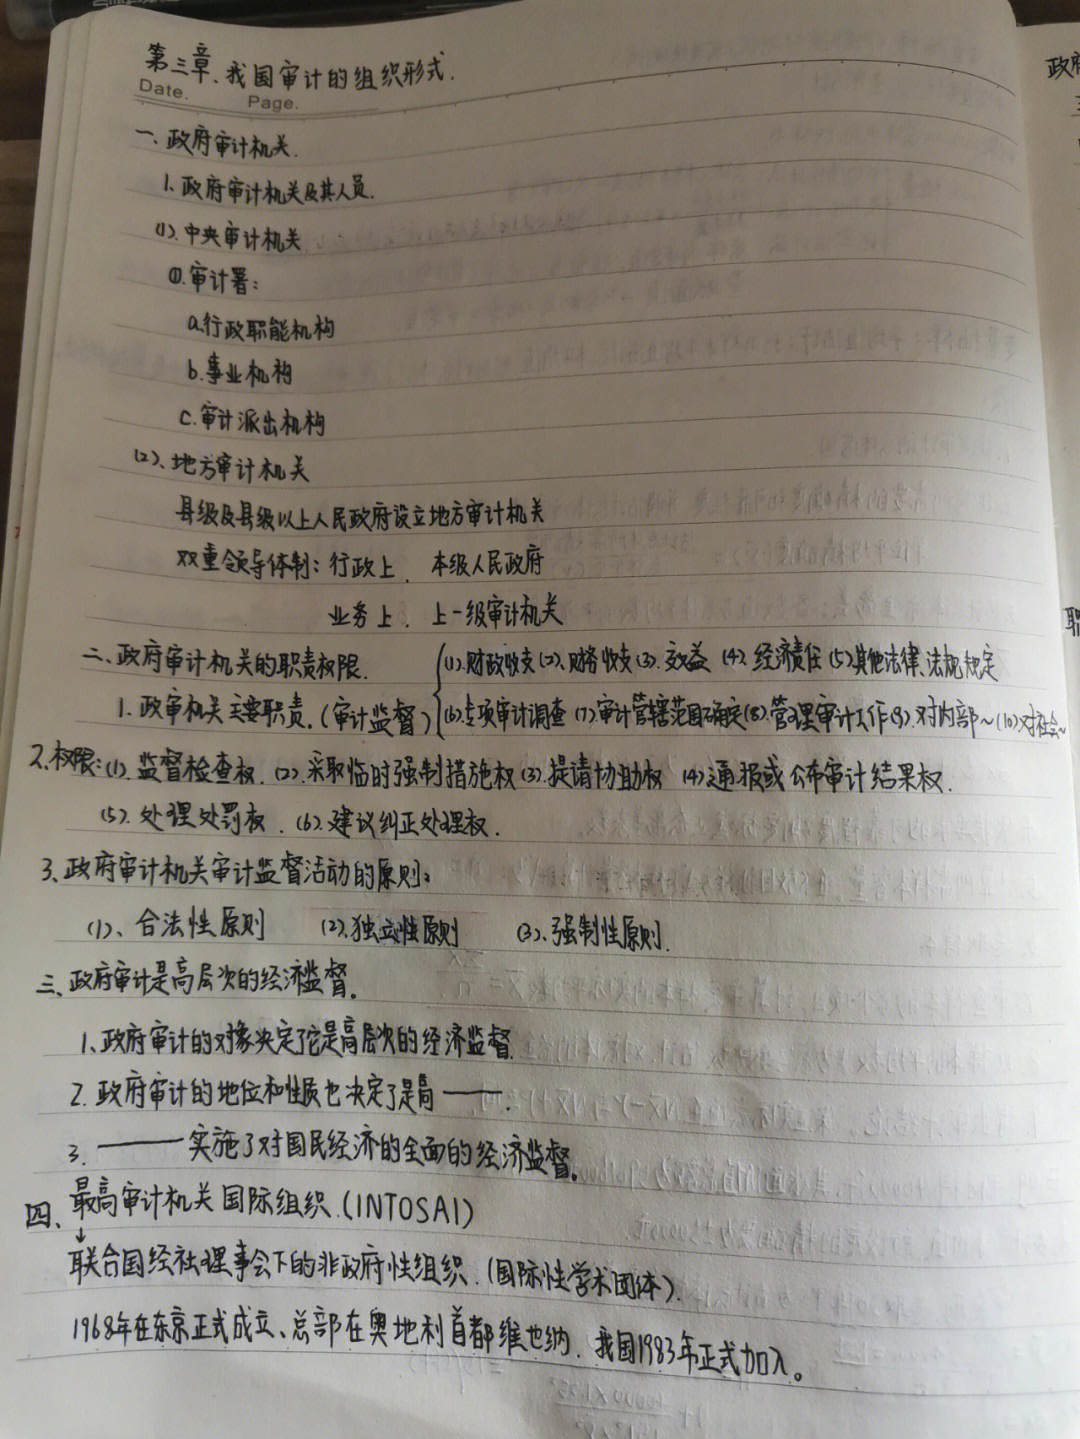 第三章、我国审计的组织形式.
Date. Page.
一、政府审计机关.
1、政府审计机关及其人员.
(1).中央审计机关
①.审计署:
a.行政职能机构
b.事业机构
c.审计派出机构
(2)、地方审计机关
县级及县级以上人民政府设立地方审计机关
双重领导体制: 行政上. 本级人民政府
业务上. 上一级审计机关
二、政府审计机关的职责权限. (1).财政收支(2).财务收支(3).效益 (4).经济责任(5)其他法律、法规规定
1.政审机关主要职责.(审计监督) (6).专项审计调查 (7).审计管辖范围确定(8).管理审计工作(9).对内部~(10)对社会~
2.权限:(1).监督检查权.(2).采取临时强制措施权(3).提请协助权 (4)通报或公布审计结果权.
(5).处理处罚权.(6).建议纠正处理权.
3、政府审计机关审计监督活动的原则:
(1)、合法性原则 (2).独立性原则 (3).强制性原则.
三、政府审计是高层次的经济监督.
1、政府审计的对象决定了它是高层次的经济监督.
2.政府审计的地位和性质也决定了是高——.
3.——实施了对国民经济的全面的经济监督.
四、最高审计机关国际组织.(INTOSAI)
↓
联合国经社理事会下的非政府性组织.(国际性学术团体).
1968年在东京正式成立、总部在奥地利首都维也纳.我国1983年正式加入。
政府
职